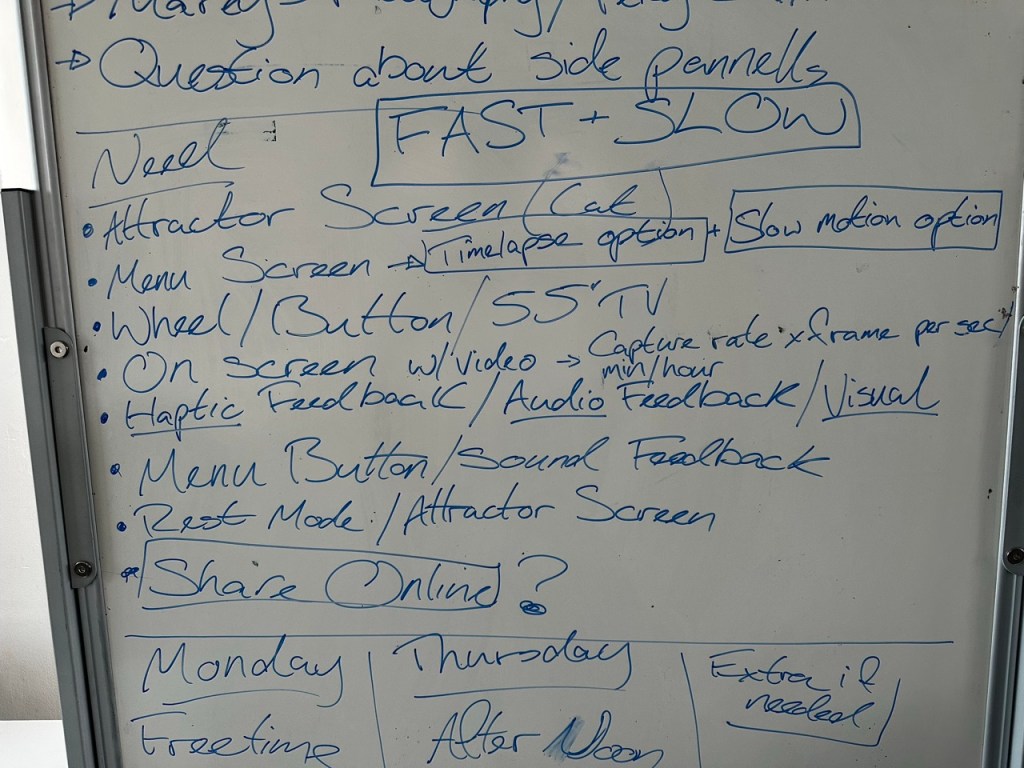 → Question about side pennells
FAST + SLOW
Need
• Attractor Screen (Cat)
• Menu Screen → Timelapse option + Slow motion option
• Wheel / Button / 55" TV
• On screen w/ video → Capture rate x frame per sec /
min/hour
• Haptic Feedback / Audio Feedback / Visual
• Menu Button / Sound Feedback
• Rest Mode / Attractor Screen
• Share Online ?
Monday | Thursday | Extra if
needed
Freetime After Noon